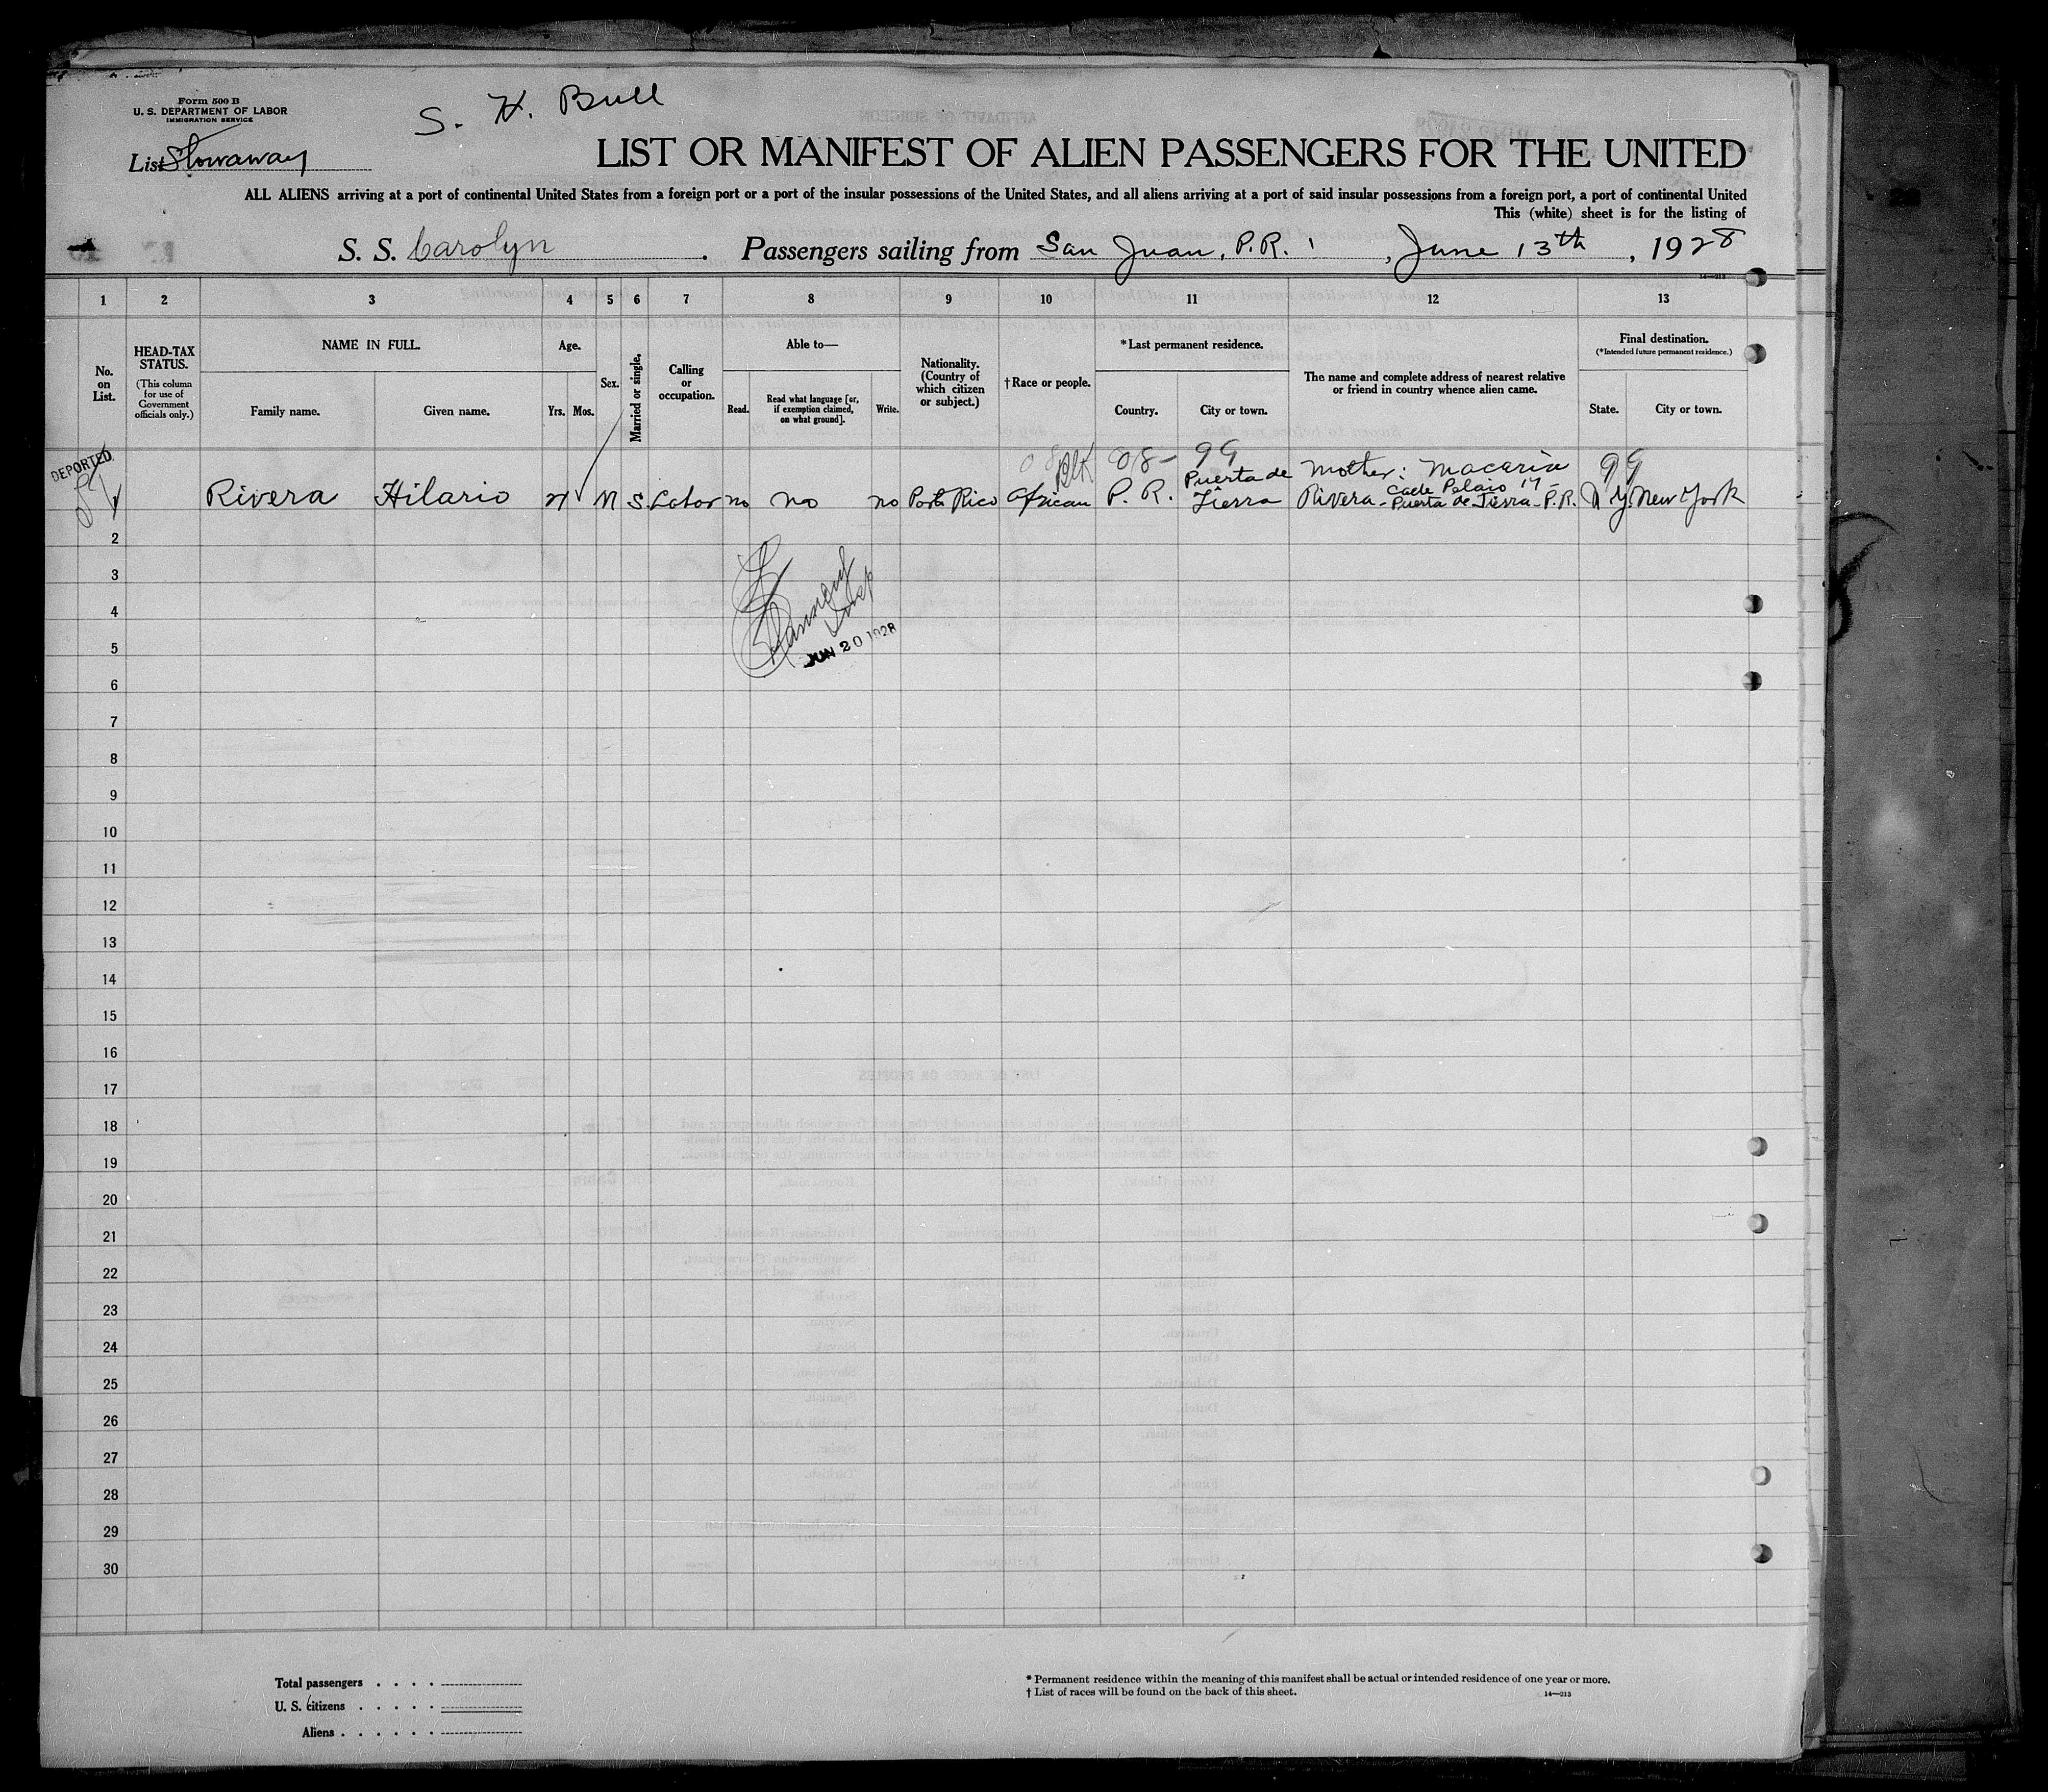 Form 500 B
U. S. DEPARTMENT OF LABOR
IMMIGRATION SERVICE
S. H. Bull
List Stowaway
LIST OR MANIFEST OF ALIEN PASSENGERS FOR THE UNITED
ALL ALIENS arriving at a port of continental United States from a foreign port or a port of the insular possessions of the United States, and all aliens arriving at a port of said insular possessions from a foreign port, a port of continental United
This (white) sheet is for the listing of
S. S. Carolyn . Passengers sailing from San Juan, P.R. , June 13th , 1928
14—213
1 2 3 4 5 6 7 8 9 10 11 12 13
No. on List.
HEAD-TAX STATUS.
(This column for use of Government officials only.)
NAME IN FULL.
Family name. Given name.
Age.
Yrs. Mos.
Sex.
Married or single.
Calling or occupation.
Able to—
Read. Read what language [or, if exemption claimed, on what ground]. Write.
Nationality. (Country of which citizen or subject.)
†Race or people.
*Last permanent residence.
Country. City or town.
The name and complete address of nearest relative or friend in country whence alien came.
Final destination.
(*Intended future permanent residence.)
State. City or town.
DEPORTED
Blk 08- 99 99
Rivera Hilario 21 M S. Labor no no no Porto Rico African P. R. Puerta de Tierra Mother: Macaria Rivera - Calle Pelaio 17 - Puerta de Tierra - P.R. N Y. New York
2
3
4
5
JUN 20 1928
6
7
8
9
10
11
12
13
14
15
16
17
18
19
20
21
22
23
24
25
26
27
28
29
30
Total passengers . . . .
U. S. citizens . . . . .
Aliens . . . . . .
* Permanent residence within the meaning of this manifest shall be actual or intended residence of one year or more.
† List of races will be found on the back of this sheet.
14—213